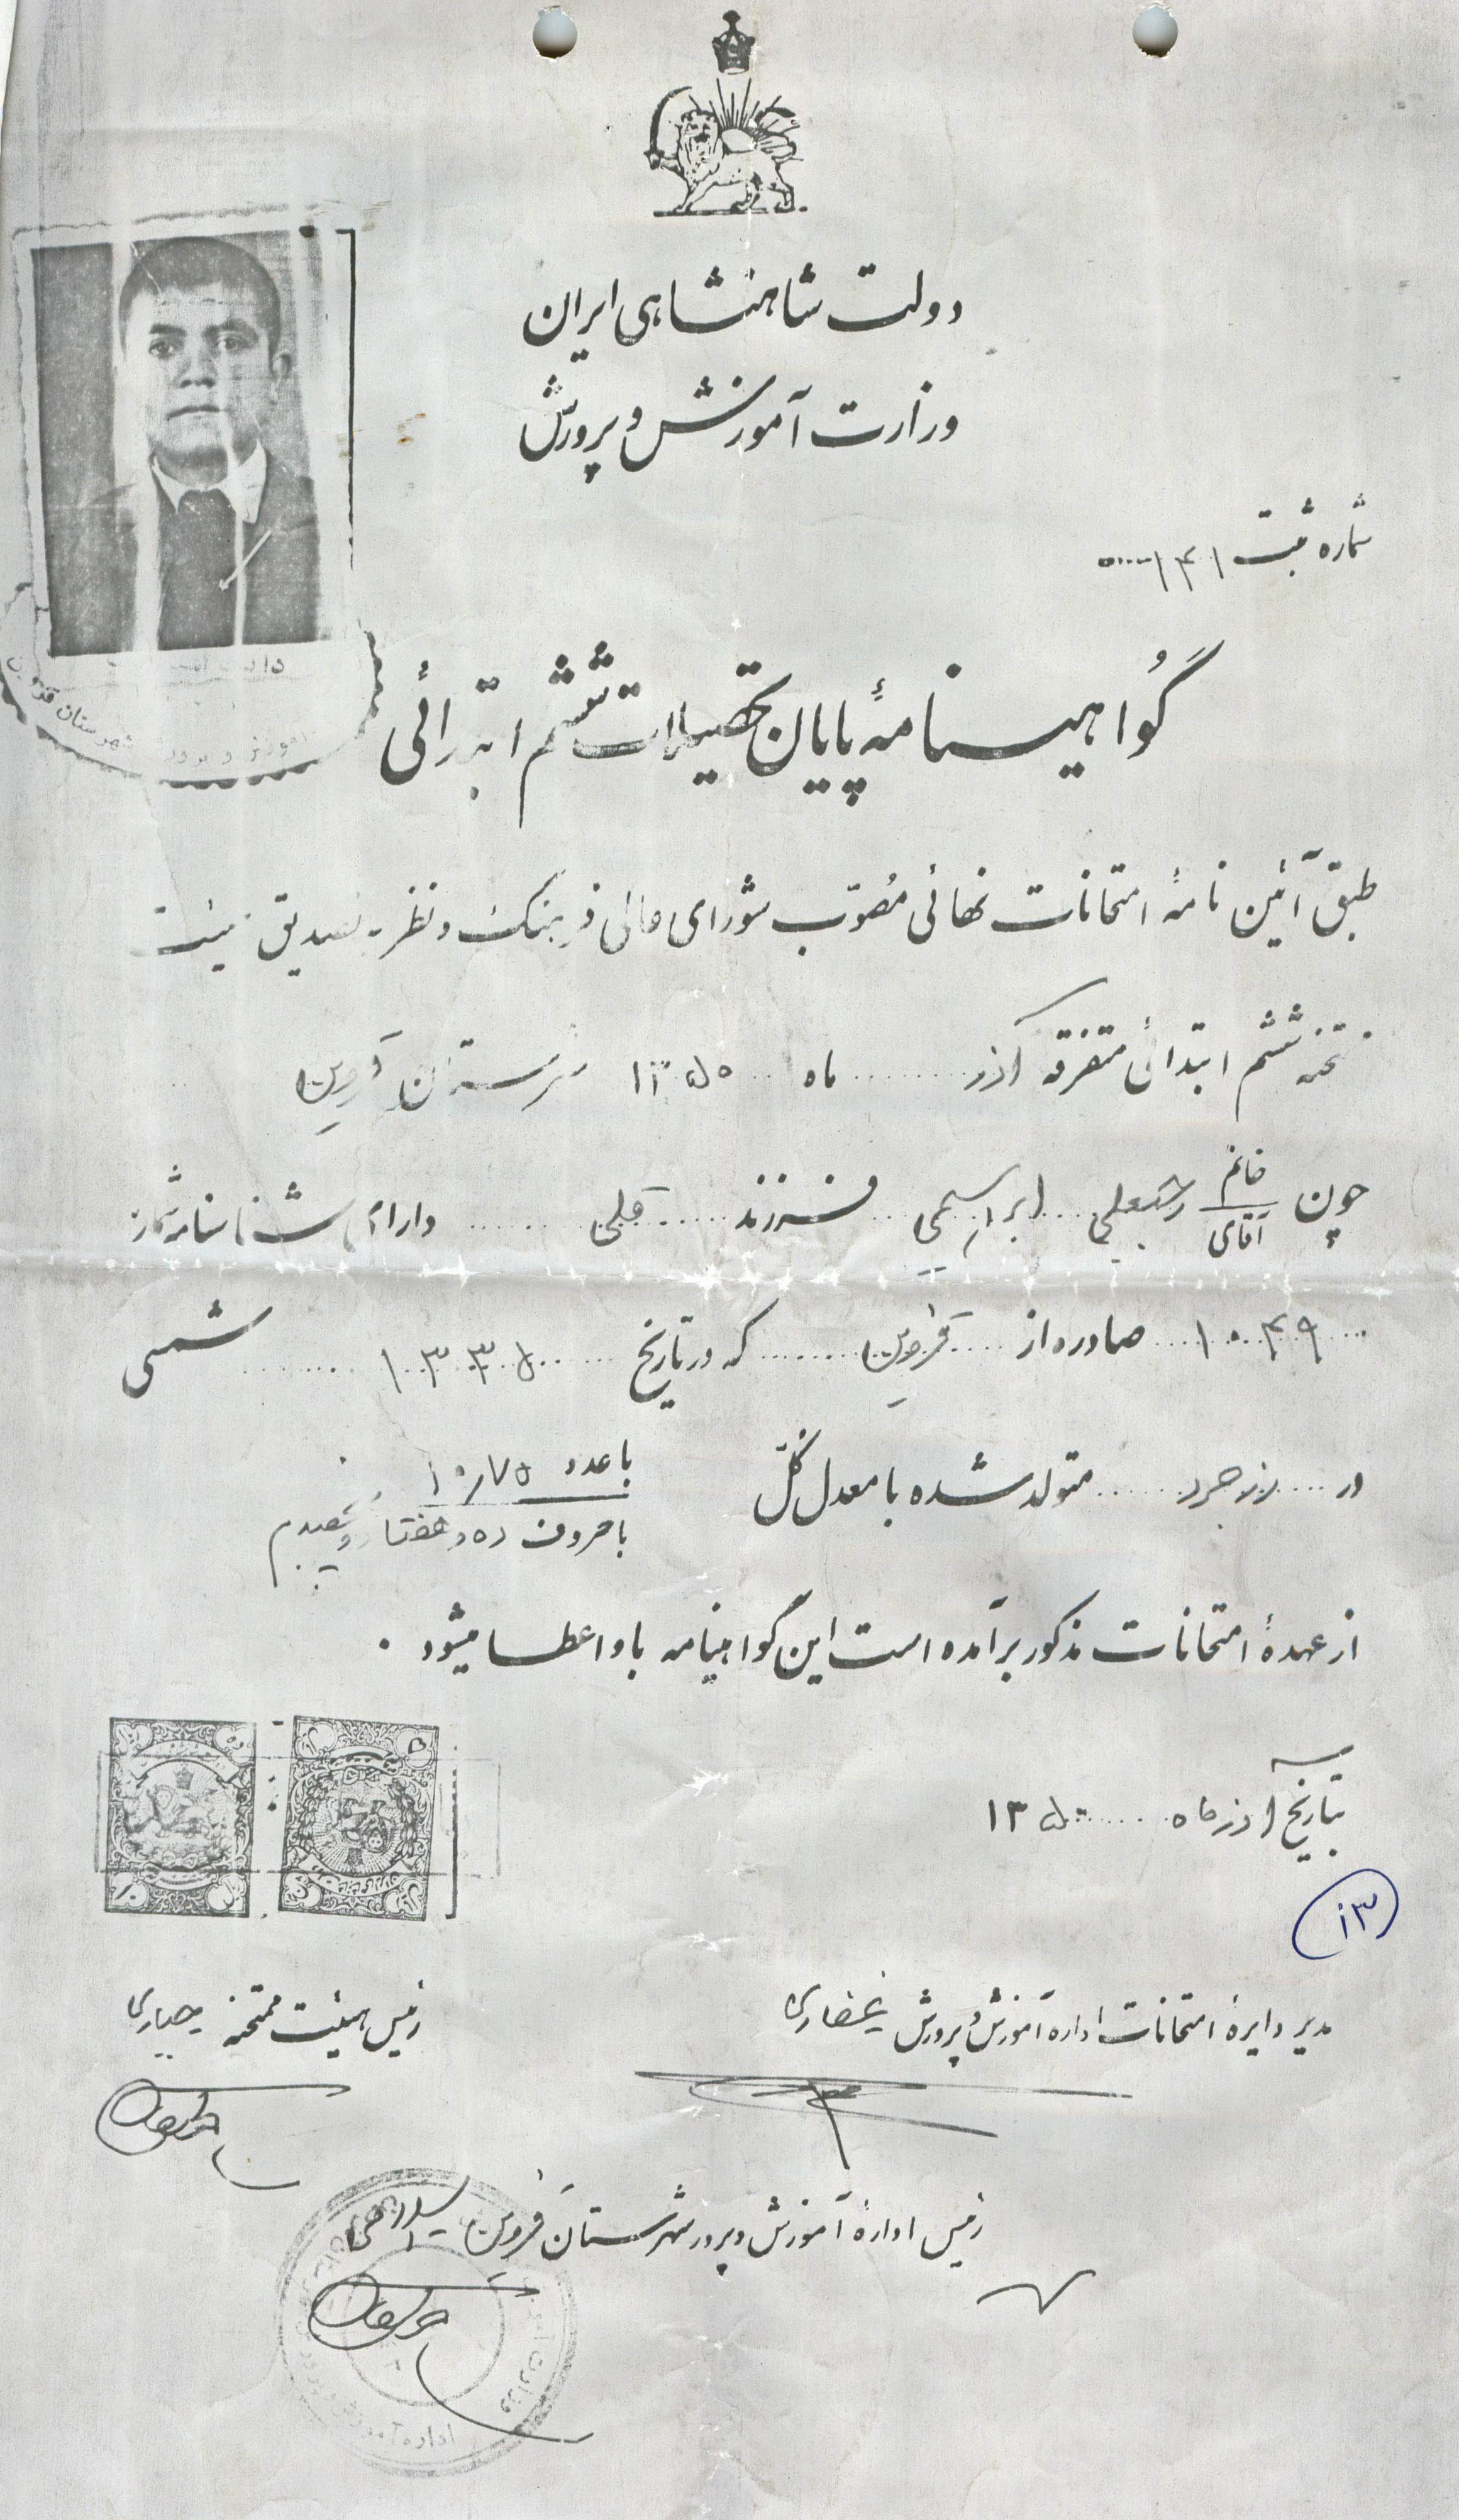 دولت شاهنشاهی ایران
وزارت آموزش و پرورش
شماره ثبت ۱۴۱
گواهینامهٔ پایان تحصیلات ششم ابتدائی
طبق آئین نامهٔ امتحانات نهائی مصوّب شورای عالی فرهنگ و نظر بتصدیق هیئت
ممتحنه ششم ابتدائی متفرقه آذر ماه ۱۳۵۰ شهرستان قزوین
چون خانم آقای رجبعلی ابراهیمی فرزند قلی دارای شناسنامه شماره
۱۰۴۹ صادره از قزوین که در تاریخ ۱۳۳۵ شمسی
در رزجرد متولد شده با معدل کلّ باعدد ۱۰/۷۵
باحروف ده و هفتاد و پنج صدم
از عهدهٔ امتحانات مذکور برآمده است این گواهینامه باو اعطا میشود .
بتاریخ آذر ماه ۱۳۵۰
۱۳
مدیر دایرهٔ امتحانات اداره آموزش و پرورش غضاری
رئیس هیئت ممتحنه جباری
رئیس ادارهٔ آموزش و پرورش شهرستان قزوین